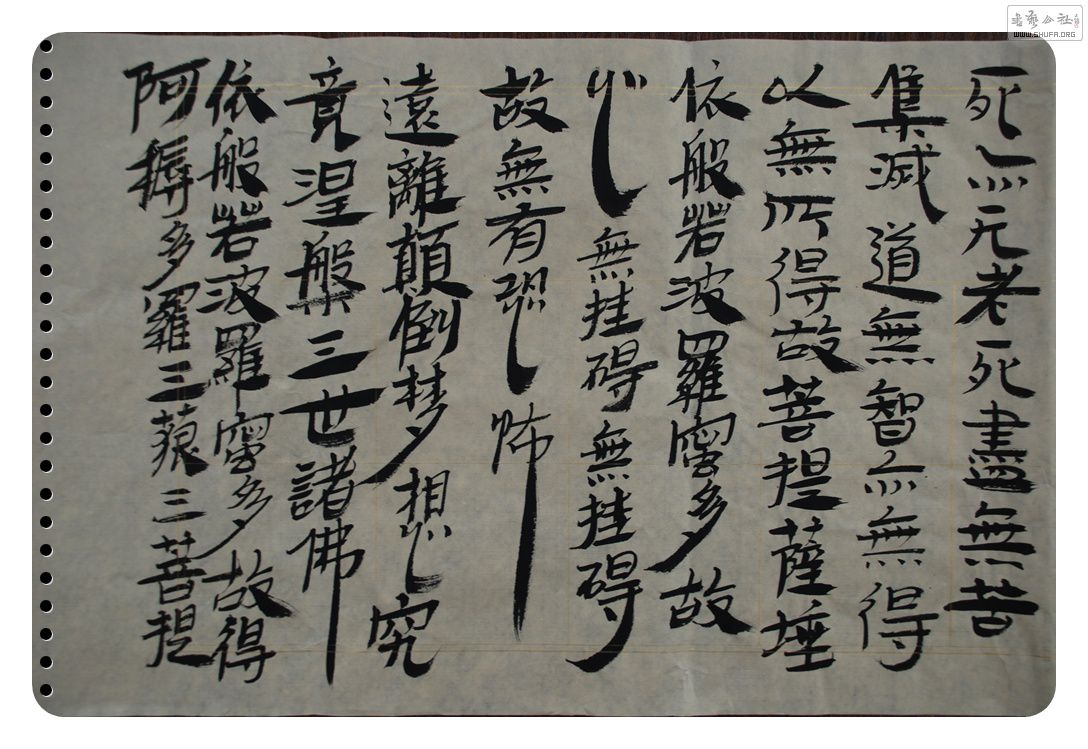 死亦无老死盡無苦
集滅道無智亦無得
以無所得故菩提薩埵
依般若波羅蜜多故
心無挂碍無挂碍
故無有恐怖
遠離顛倒梦想究
竟涅槃三世諸佛
依般若波羅蜜多故得
阿耨多羅三藐三菩提
WWW.SHUFA.ORG